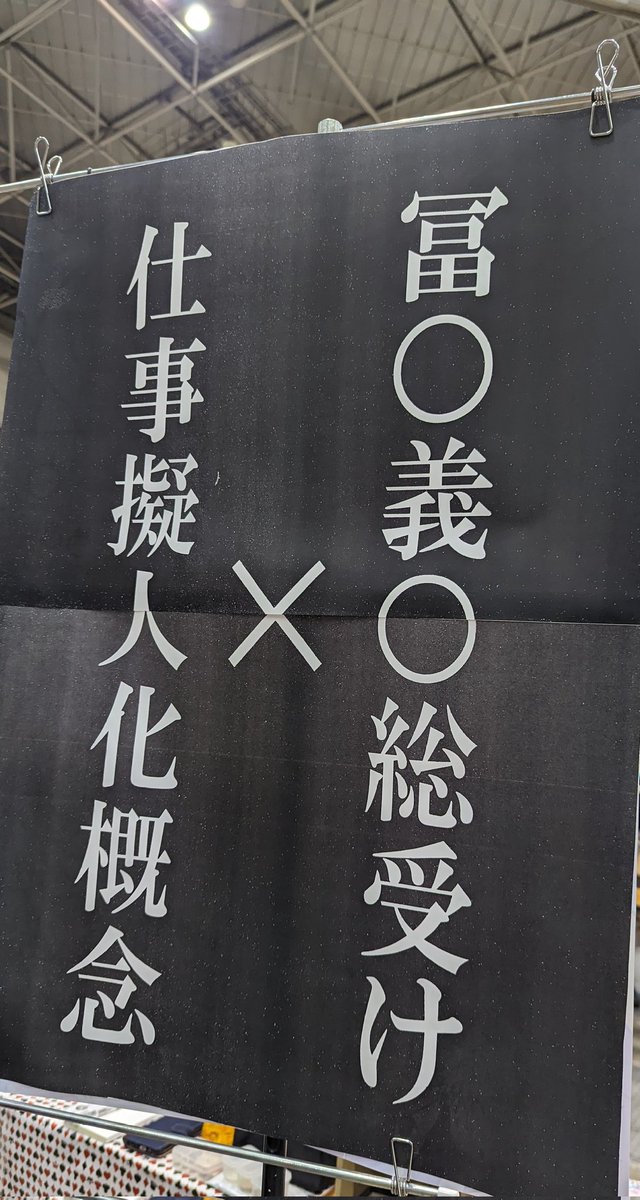 冨〇義〇総受け
×
仕事擬人化概念